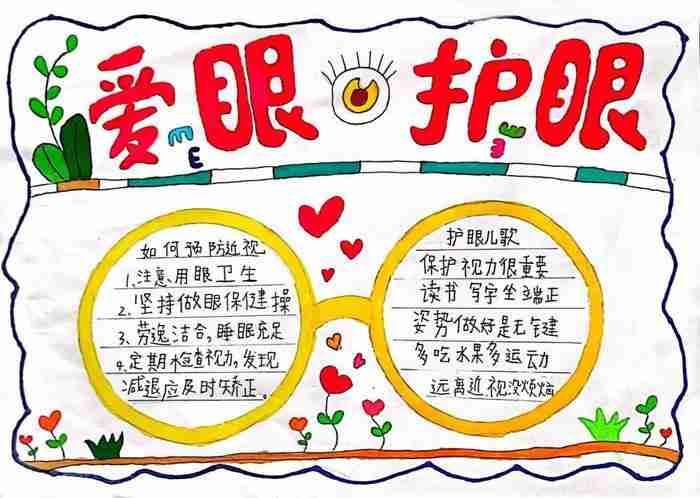 爱眼 护眼
如何预防近视
1.注意用眼卫生
2.坚持做眼保健操
3.劳逸洁合,睡眠充足
4.定期检查视力,发现
减退应及时矫正。
护眼儿歌
保护视力很重要
读书写字坐端正
姿势做好是关键
多吃水果多运动
远离近视没烦恼